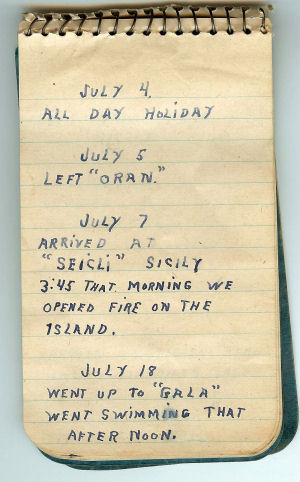 JULY 4.
ALL DAY HOLIDAY
JULY 5
LEFT "ORAN."
JULY 7
ARRIVED AT
"SEICLI" SICILY
3:45 THAT MORNING WE
OPENED FIRE ON THE
ISLAND.
JULY 18
WENT UP TO "GALA"
WENT SWIMMING THAT
AFTER NOON.